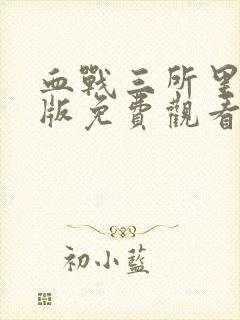 血戰三所里
版免費觀看
初小藍